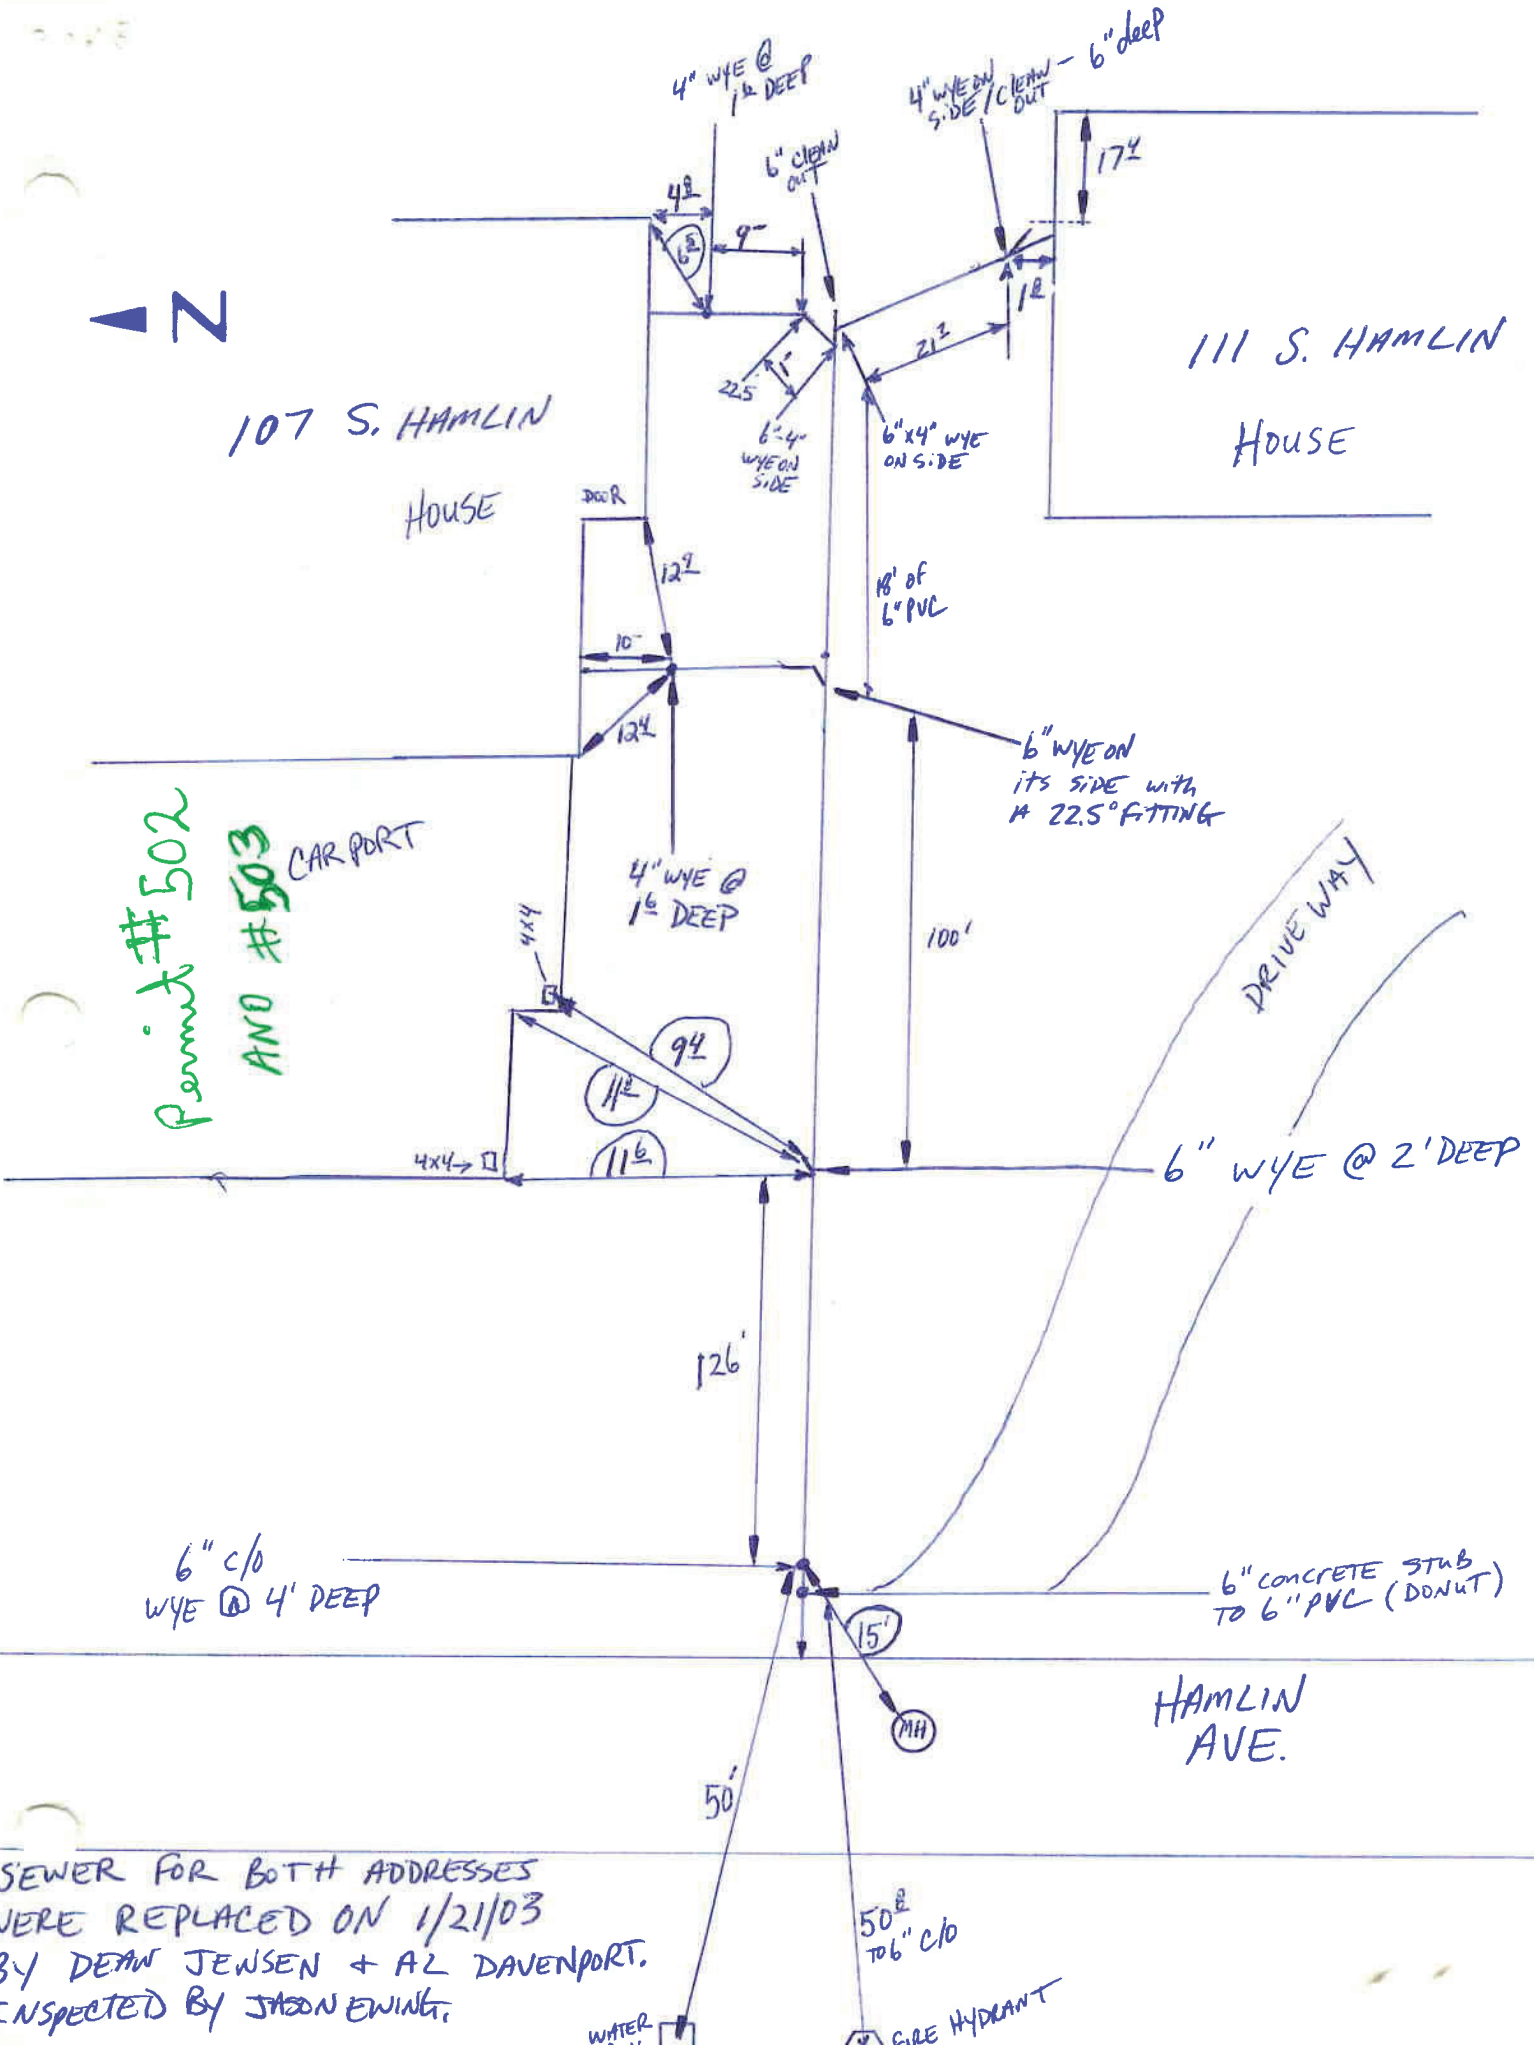 4" WYE @
DEEP
4" WYE ON
SIDE / CLEAN
OUT
- 6" deep
6" CLEAN
OUT
17⁴
4⁸
6⁵
9-
1⁸
N
21²
22.5
1'
107 S. HAMLIN
HOUSE
111 S. HAMLIN
HOUSE
6"-4"
WYE ON
SIDE
6"x4" WYE
ON SIDE
DOOR
12⁹
18' OF
6" PVC
10-
12⁴
6" WYE ON
its SIDE with
A 22.5° FITTING
Permit #502
AND #503
CARPORT
4" WYE @
1⁶ DEEP
4x4
100'
DRIVEWAY
9⁴
4x4→
11⁶
6" WYE @ 2' DEEP
126'
6" C/O
WYE @ 4' DEEP
6" CONCRETE STUB
TO 6" PVC (DONUT)
15'
MH
HAMLIN
AVE.
50'
50⁸
TO 6" C/O
SEWER FOR BOTH ADDRESSES
WERE REPLACED ON 1/21/03
BY DEAN JENSEN + AL DAVENPORT.
INSPECTED BY JASON EWING.
WATER
FIRE HYDRANT